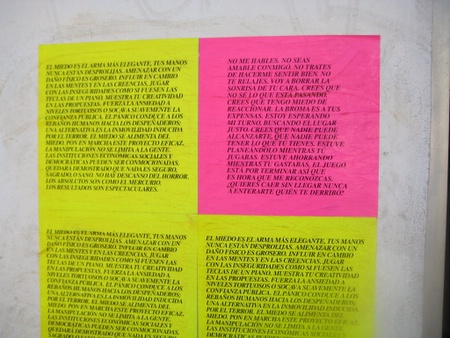 EL MIEDO ES EL ARMA MÁS ELEGANTE, TUS MANOS
NUNCA ESTÁN DESPROLIJAS. AMENAZAR CON UN
DAÑO FÍSICO ES GROSERO. INFLUIR EN CAMBIO
EN LAS MENTES Y EN LAS CREENCIAS, JUGAR
CON LAS INSEGURIDADES COMO SI FUESEN LAS
TECLAS DE UN PIANO. MUESTRA TU CREATIVIDAD
EN LAS PROPUESTAS. FUERZA LA ANSIEDAD A
NIVELES TORTUOSOS O SOCAVA SUAVEMENTE LA
CONFIANZA PÚBLICA. EL PÁNICO CONDUCE A LOS
REBAÑOS HUMANOS HACIA LOS DESPEÑADEROS;
UNA ALTERNATIVA ES LA INMOVILIDAD INDUCIDA
POR EL TERROR. EL MIEDO SE ALIMENTA DEL
MIEDO. PON EN MARCHA ESTE PROYECTO EFICAZ.
LA MANIPULACIÓN NO SE LIMITA A LA GENTE.
LAS INSTITUCIONES ECONÓMICAS SOCIALES Y
DEMOCRÁTICAS PUEDEN SER CONMOCIONADAS.
QUEDARÁ DEMOSTRADO QUE NADA ES SEGURO,
SAGRADO, O SANO. NO HAY DESCANSO DEL HORROR.
LOS ABSOLUTOS SON COMO EL MERCURIO.
LOS RESULTADOS SON ESPECTACULARES.
NO ME HABLES. NO SEAS
AMABLE CONMIGO. NO TRATES
DE HACERME SENTIR BIEN. NO
TE RELAJES. VOY A BORRAR LA
SONRISA DE TU CARA. CREES QUE
NO SÉ LO QUE ESTÁ PASANDO.
CREES QUE TENGO MIEDO DE
REACCIONAR. LA BROMA ES A TUS
EXPENSAS. ESTOY ESPERANDO
MI TURNO, BUSCANDO EL LUGAR
JUSTO. CREES QUE NADIE PUEDE
ALCANZARTE, QUE NADIE PUEDE
TENER LO QUE TÚ TIENES. ESTUVE
PLANEÁNDOLO MIENTRAS TÚ
JUGABAS. ESTUVE AHORRANDO
MIENTRAS TÚ GASTABAS. EL JUEGO
ESTÁ POR TERMINAR ASÍ QUE
ES HORA QUE ME RECONOZCAS.
¿QUIERES CAER SIN LLEGAR NUNCA
A ENTERARTE QUIÉN TE DERRIBÓ?
EL MIEDO ES EL ARMA MÁS ELEGANTE, TUS MANOS
NUNCA ESTÁN DESPROLIJAS. AMENAZAR CON UN
DAÑO FÍSICO ES GROSERO. INFLUIR EN CAMBIO
EN LAS MENTES Y EN LAS CREENCIAS, JUGAR
CON LAS INSEGURIDADES COMO SI FUESEN LAS
TECLAS DE UN PIANO. MUESTRA TU CREATIVIDAD
EN LAS PROPUESTAS. FUERZA LA ANSIEDAD A
NIVELES TORTUOSOS O SOCAVA SUAVEMENTE LA
CONFIANZA PÚBLICA. EL PÁNICO CONDUCE A LOS
REBAÑOS HUMANOS HACIA LOS DESPEÑADEROS;
UNA ALTERNATIVA ES LA INMOVILIDAD INDUCIDA
POR EL TERROR. EL MIEDO SE ALIMENTA DEL
MIEDO. PON EN MARCHA ESTE PROYECTO EFICAZ.
LA MANIPULACIÓN NO SE LIMITA A LA GENTE.
LAS INSTITUCIONES ECONÓMICAS SOCIALES Y
DEMOCRÁTICAS PUEDEN SER CONMOCIONADAS.
QUEDARÁ DEMOSTRADO QUE NADA ES SEGURO,
EL MIEDO ES EL ARMA MÁS ELEGANTE, TUS MANOS
NUNCA ESTÁN DESPROLIJAS. AMENAZAR CON UN
DAÑO FÍSICO ES GROSERO. INFLUIR EN CAMBIO
EN LAS MENTES Y EN LAS CREENCIAS, JUGAR
CON LAS INSEGURIDADES COMO SI FUESEN LAS
TECLAS DE UN PIANO. MUESTRA TU CREATIVIDAD
EN LAS PROPUESTAS. FUERZA LA ANSIEDAD A
NIVELES TORTUOSOS O SOCAVA SUAVEMENTE LA
CONFIANZA PÚBLICA. EL PÁNICO CONDUCE A LOS
REBAÑOS HUMANOS HACIA LOS DESPEÑADEROS;
UNA ALTERNATIVA ES LA INMOVILIDAD INDUCIDA
POR EL TERROR. EL MIEDO SE ALIMENTA DEL
MIEDO. PON EN MARCHA ESTE PROYECTO EFICAZ.
LA MANIPULACIÓN NO SE LIMITA A LA GENTE.
LAS INSTITUCIONES ECONÓMICAS SOCIALES Y